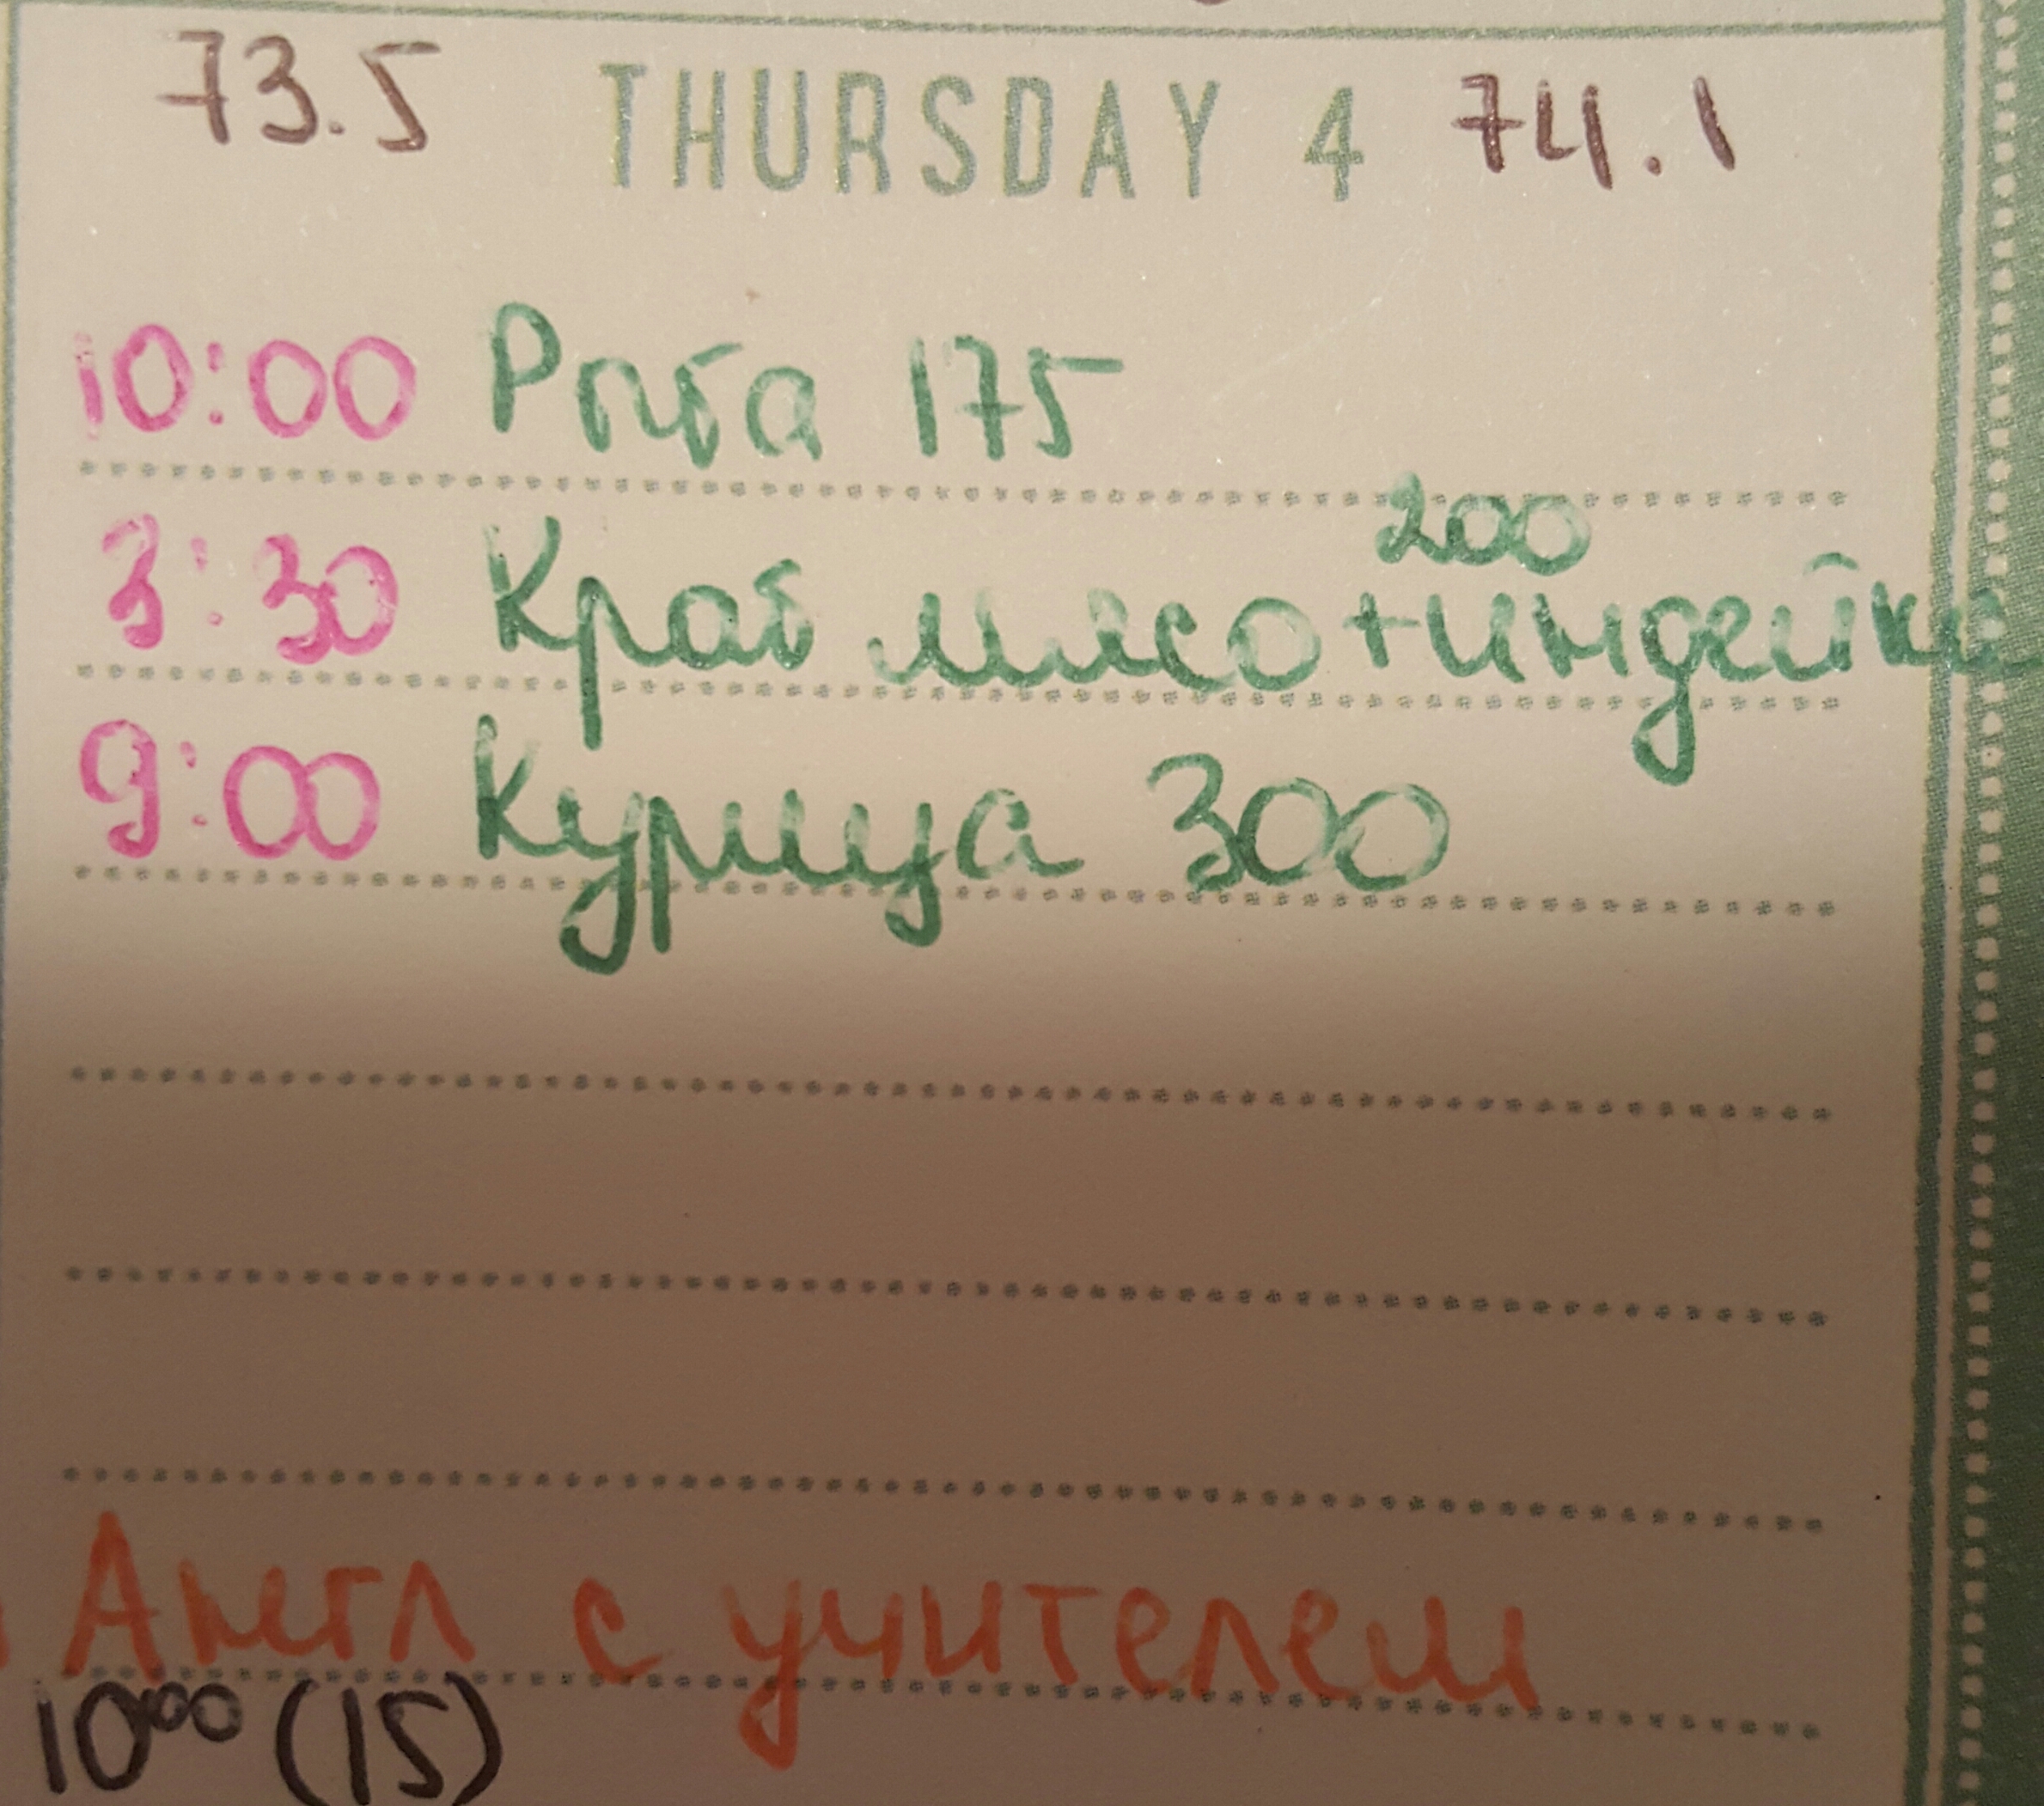 73.5 THURSDAY 4 74.1
10:00 Рыба 175
200
3:30 Краб мясо + индейки
9:00 Курица 300
Англ с учителем
10⁰⁰ (15)